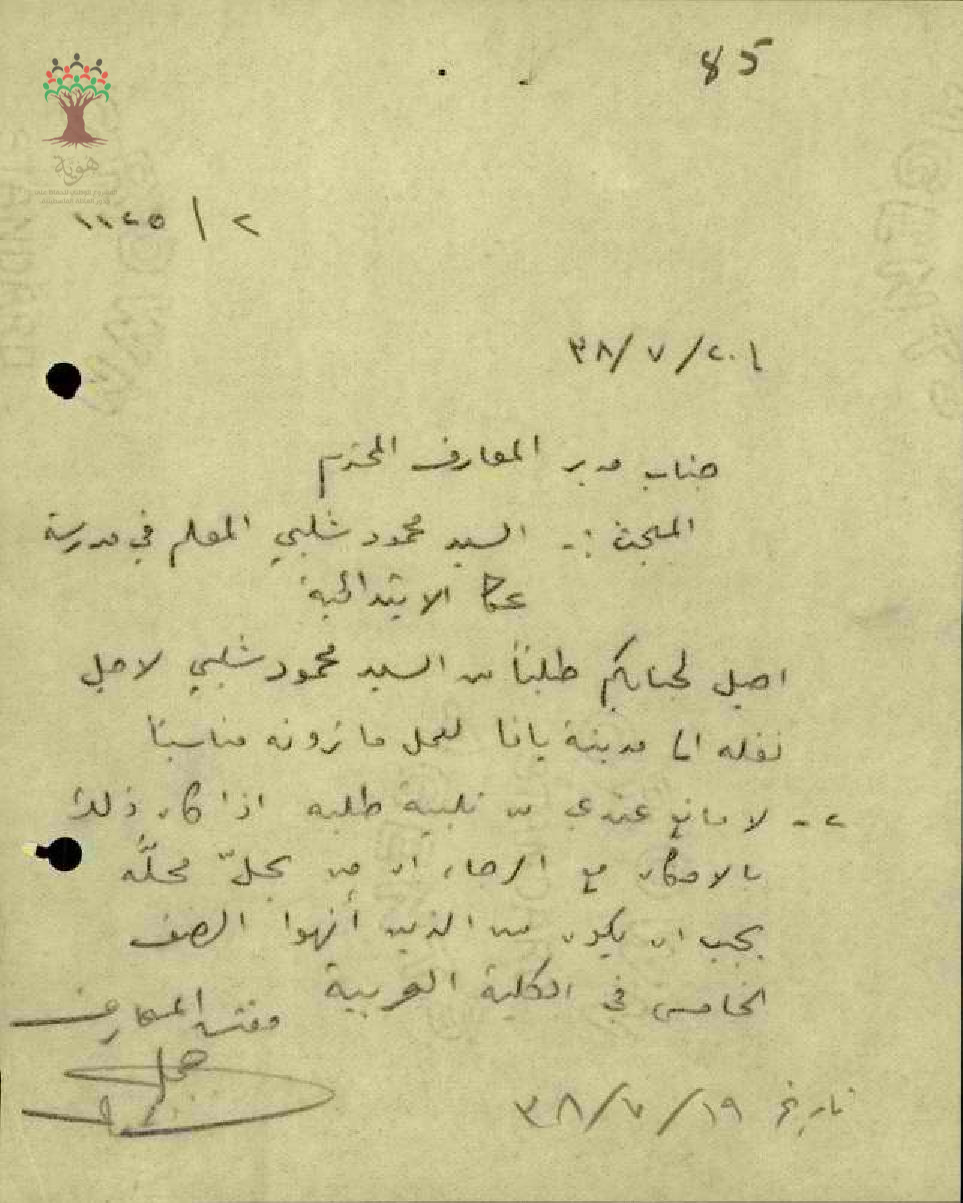 85
هوية
٢ / ١١٢٥
٣٨/٧/٢٠١
جناب مدير المعارف المحترم
المبحث :- السيد محمود شلبي المعلم في مدرسة
عكا الابتدائية
احيل لجنابكم طلبًا من السيد محمود شلبي لاجل
نقله الى مدينة يافا لعمل ما ترونه مناسبًا
٢- لا مانع عندي من تلبية طلبه اذا كان ذلك
بالامكان مع الرجاء ان من يحلّ محلَّه
يجب ان يكون من الذين أنهوا الصف
الخامس في الكلية العربية
مفتش المعارف
تاريخ ١٩/٧/٣٨